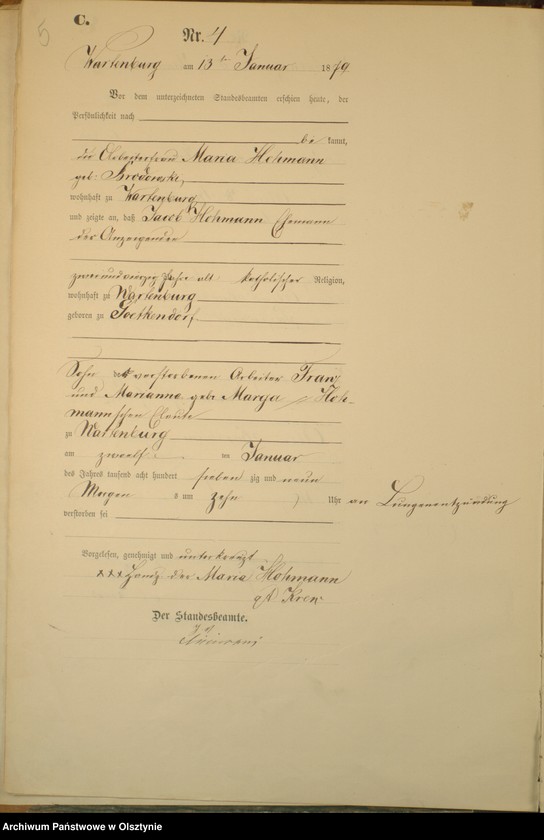 5
C.
Nr. 4
Wartenburg am 13ten Januar 1879
Vor dem unterzeichneten Standesbeamten erschien heute, der
Persönlichkeit nach
be kannt,
die Arbeiterfrau Maria Hohmann
geb.
wohnhaft zu Wartenburg
und zeigte an, daß Jacob Hohmann Ehemann
der Anzeigenden
Jahre alt katholischer Religion,
wohnhaft zu Wartenburg
geboren zu
Sohn der verstorbenen Arbeiter Franz
und Marianna geb. Hoh-
mannschen Eheleute
zu Wartenburg
am zwoelf ten Januar
des Jahres tausend acht hundert sieben zig und neun
Morgens um zehn Uhr an Lungenentzündung
verstorben sei
Vorgelesen, genehmigt und unterkreuzt
xxx Handz. der Maria Hohmann
Der Standesbeamte.
Archiwum Państwowe w Olsztynie